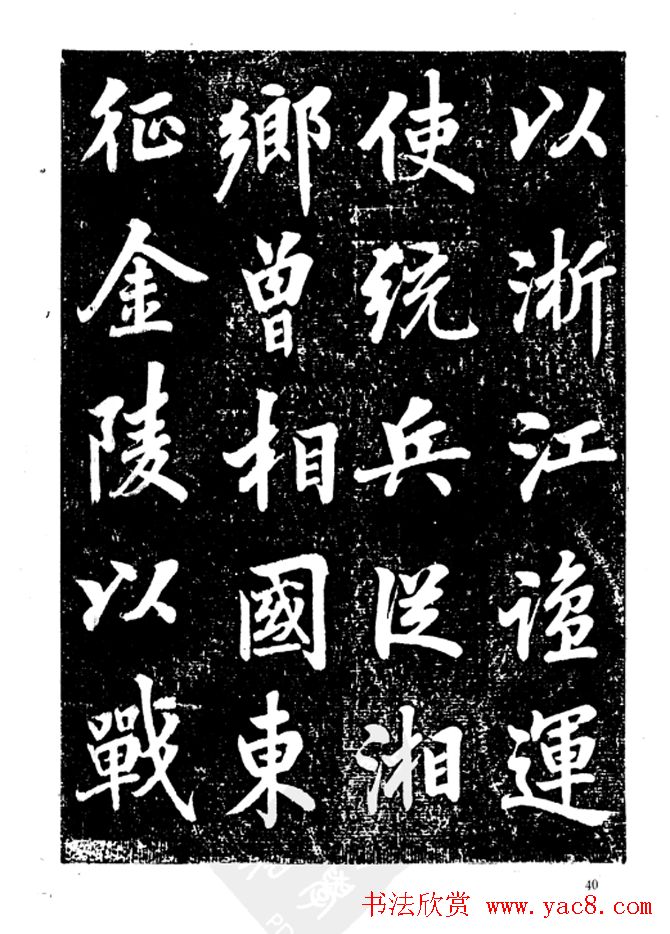 以浙江運
使統兵從湘
鄉曾相國東
征金陵以戰
40
书法欣赏 www.yac8.com